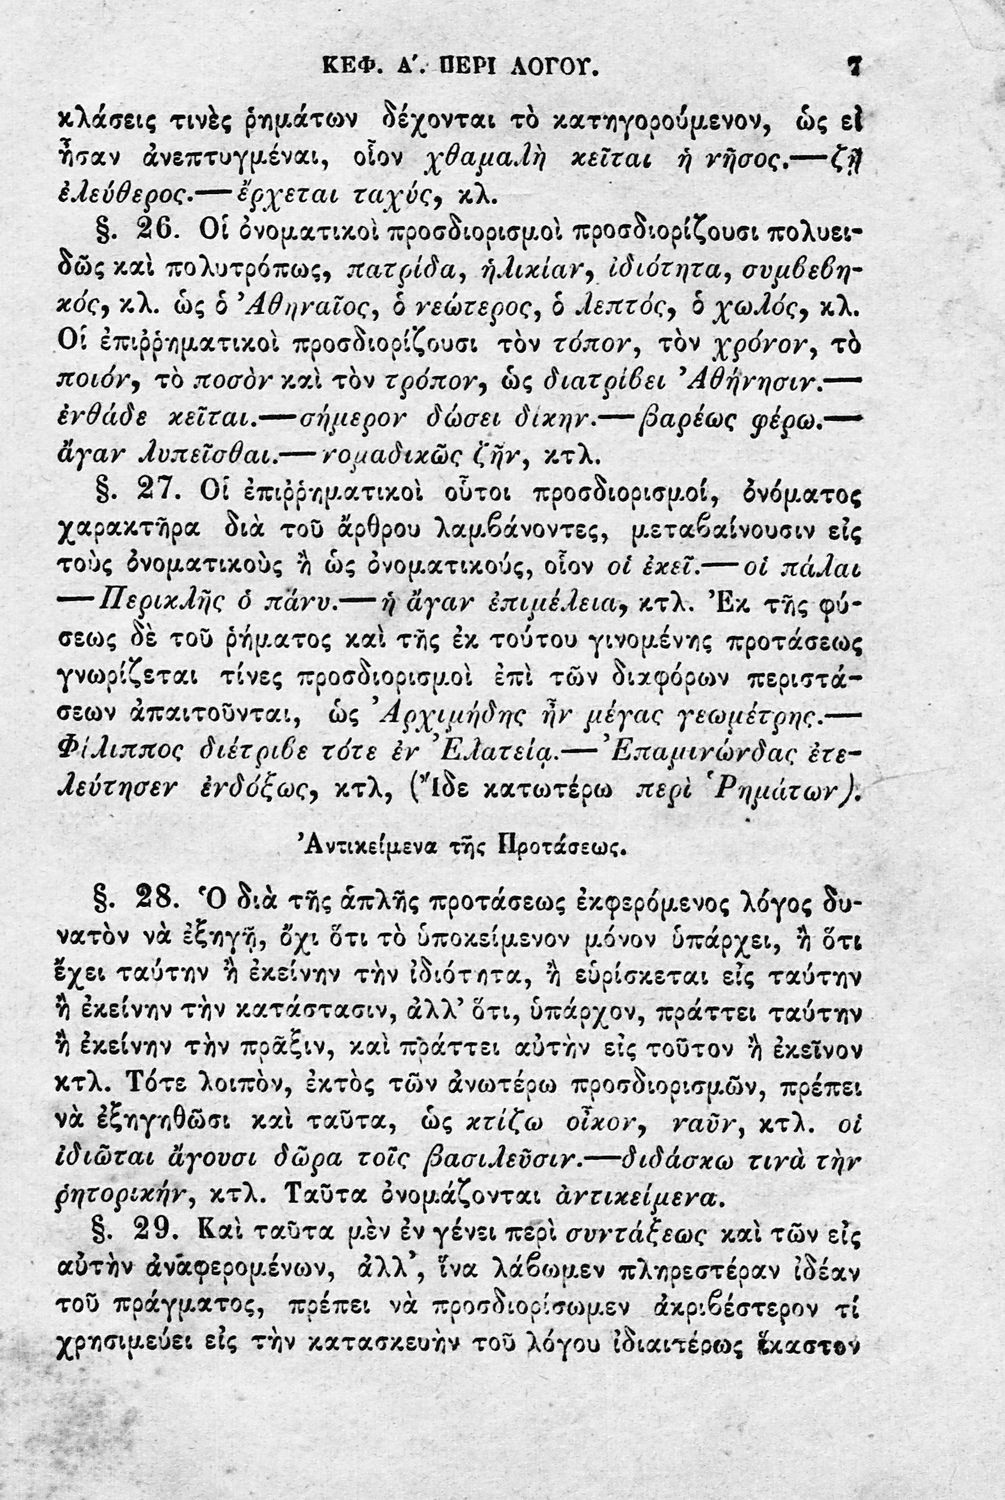 ΚΕΦ. Α΄. ΠΕΡΙ ΛΟΓΟΥ. 7
κλάσεις τινὲς ῥημάτων δέχονται τὸ κατηγορούμενον, ὡς εἰ
ἦσαν ἀνεπτυγμέναι, οἷον χθαμαλὴ κεῖται ἡ νῆσος.—ζῇ
ἐλεύθερος.—ἔρχεται ταχύς, κλ.
§. 26. Οἱ ὀνοματικοὶ προσδιορισμοὶ προσδιορίζουσι πολυει-
δῶς καὶ πολυτρόπως, πατρίδα, ἡλικίαν, ἰδιότητα, συμβεβη-
κός, κλ. ὡς ὁ Ἀθηναῖος, ὁ νεώτερος, ὁ λεπτός, ὁ χωλός, κλ.
Οἱ ἐπιῤῥηματικοὶ προσδιορίζουσι τὸν τόπον, τὸν χρόνον, τὸ
ποιόν, τὸ ποσὸν καὶ τὸν τρόπον, ὡς διατρίβει Ἀθήνησιν.—
ἐνθάδε κεῖται.—σήμερον δώσει δίκην.—βαρέως φέρω.—
ἄγαν λυπεῖσθαι.—νομαδικῶς ζῆν, κτλ.
§. 27. Οἱ ἐπιῤῥηματικοὶ οὗτοι προσδιορισμοί, ὀνόματος
χαρακτῆρα διὰ τοῦ ἄρθρου λαμβάνοντες, μεταβαίνουσιν εἰς
τοὺς ὀνοματικοὺς ἢ ὡς ὀνοματικούς, οἷον οἱ ἐκεῖ.—οἱ πάλαι
—Περικλῆς ὁ πάνυ.—ἡ ἄγαν ἐπιμέλεια, κτλ. Ἐκ τῆς φύ-
σεως δὲ τοῦ ῥήματος καὶ τῆς ἐκ τούτου γινομένης προτάσεως
γνωρίζεται τίνες προσδιορισμοὶ ἐπὶ τῶν διαφόρων περιστά-
σεων ἀπαιτοῦνται, ὡς Ἀρχιμήδης ἦν μέγας γεωμέτρης.—
Φίλιππος διέτριβε τότε ἐν Ἐλατείᾳ.—Ἐπαμινώνδας ἐτε-
λεύτησεν ἐνδόξως, κτλ, (Ἴδε κατωτέρω περὶ Ῥημάτων).
Ἀντικείμενα τῆς Προτάσεως.
§. 28. Ὁ διὰ τῆς ἁπλῆς προτάσεως ἐκφερόμενος λόγος δυ-
νατὸν νὰ ἐξηγῇ, ὄχι ὅτι τὸ ὑποκείμενον μόνον ὑπάρχει, ἢ ὅτι
ἔχει ταύτην ἢ ἐκείνην τὴν ἰδιότητα, ἢ εὑρίσκεται εἰς ταύτην
ἢ ἐκείνην τὴν κατάστασιν, ἀλλ' ὅτι, ὑπάρχον, πράττει ταύτην
ἢ ἐκείνην τὴν πρᾶξιν, καὶ πράττει αὐτὴν εἰς τοῦτον ἢ ἐκεῖνον
κτλ. Τότε λοιπὸν, ἐκτὸς τῶν ἀνωτέρω προσδιορισμῶν, πρέπει
νὰ ἐξηγηθῶσι καὶ ταῦτα, ὡς κτίζω οἶκον, ναῦν, κτλ. οἱ
ἰδιῶται ἄγουσι δῶρα τοῖς βασιλεῦσιν.—διδάσκω τινὰ τὴν
ῥητορικήν, κτλ. Ταῦτα ὀνομάζονται ἀντικείμενα.
§. 29. Καὶ ταῦτα μὲν ἐν γένει περὶ συντάξεως καὶ τῶν εἰς
αὐτὴν ἀναφερομένων, ἀλλ', ἵνα λάβωμεν πληρεστέραν ἰδέαν
τοῦ πράγματος, πρέπει νὰ προσδιορίσωμεν ἀκριβέστερον τί
χρησιμεύει εἰς τὴν κατασκευὴν τοῦ λόγου ἰδιαιτέρως ἕκαστον